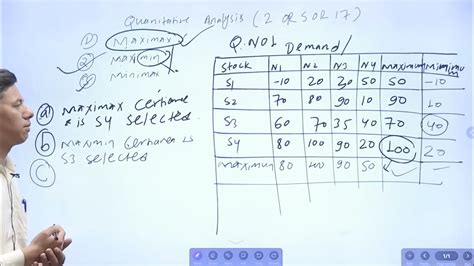 Quantitative Analysis (2 OR 5 OR 17)
① Maximax
② maximin
③ minimax
Q.NO1 Demand/
Stock N1 N2 N3 N4 maximum minimum
S1 -10 20 30 50 50 -10
S2 70 80 90 10 90 10
S3 60 70 35 40 70 40
S4 80 100 90 20 100 20
maximum 80 100 90 50
ⓐ maximax
is S4 selected
ⓑ maximin
S3 selected
ⓒ
1/1